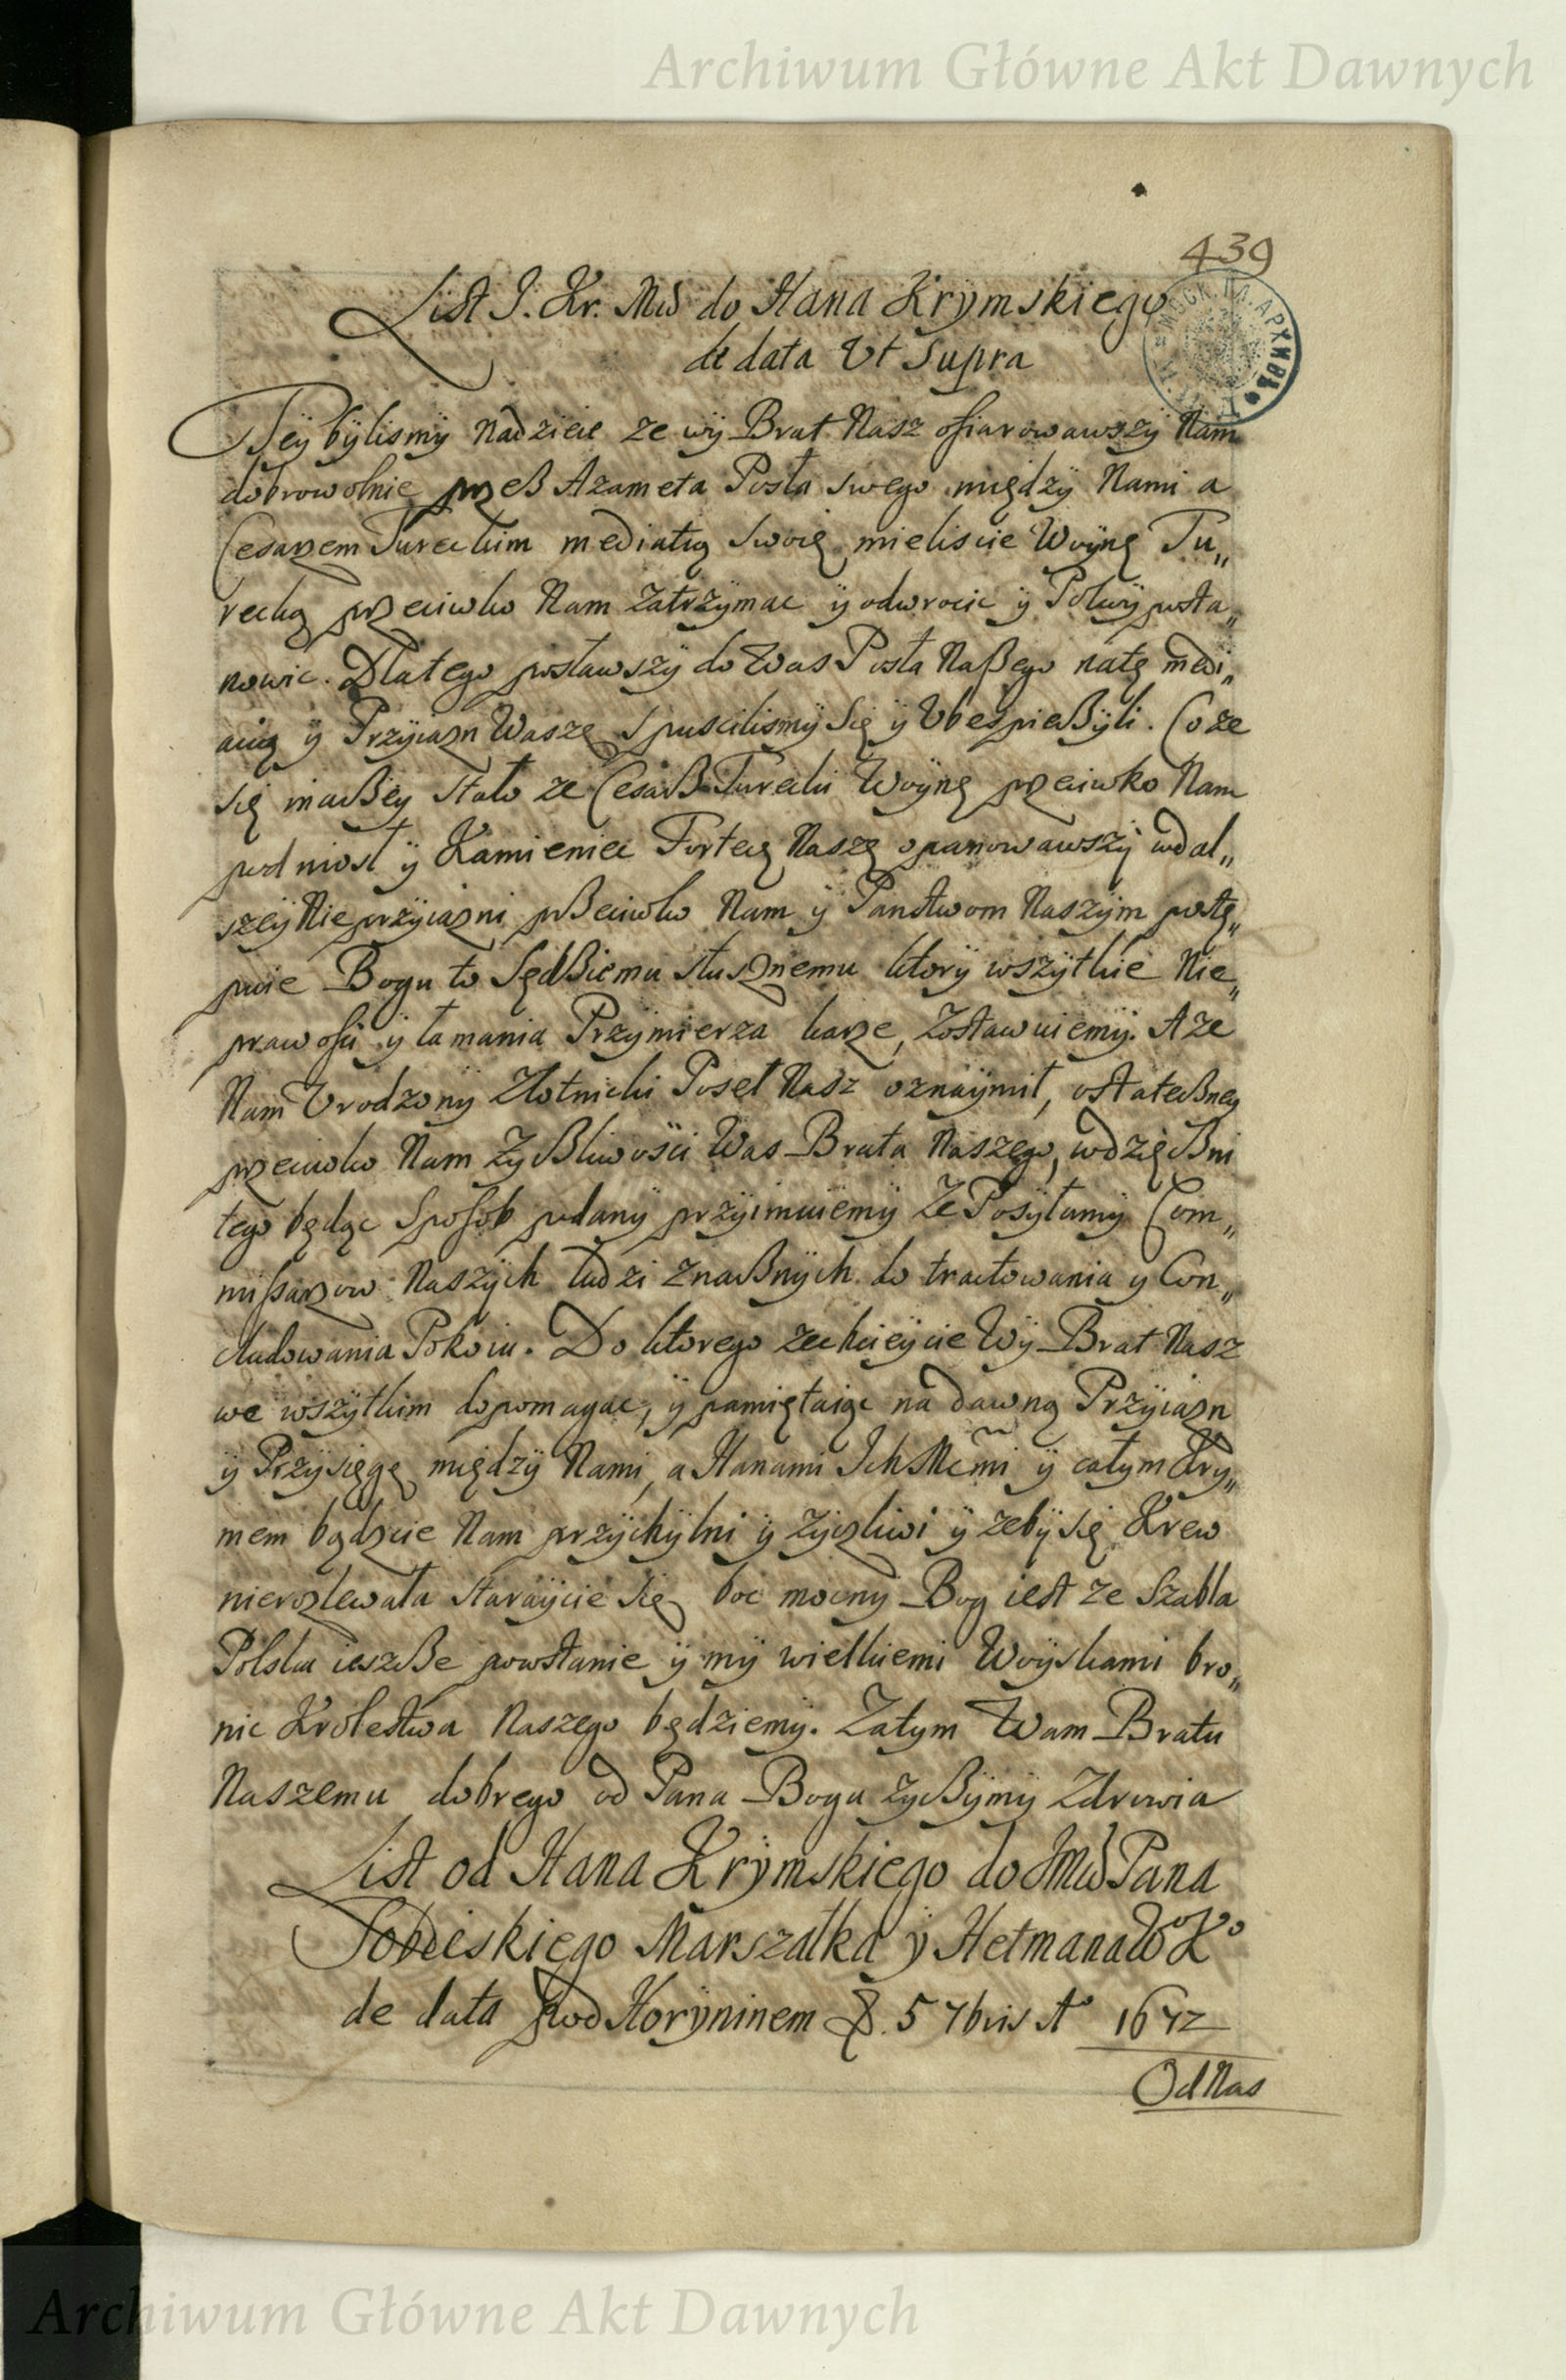 Archiwum Główne Akt Dawnych
439
List J. Kr. Mści do Hana Krymskiego
de data Vt Supra
Tey bÿlismÿ nadzieie ze wÿ Brat Nasz ofiarowawszÿ Nam
dobrowolnie przeß Azameta Posła swego między Nami a
Cesarzem Tureckim mediatią swoię mieliscie Woÿnę Tu„
recką przeciwko Nam zatrzÿmac ÿ odwrocic ÿ Pokuÿ posta„
nowic. Dlatego posławszÿ do Was Posła Naßego natę medi„
acią ÿ Przÿiazn Waszę spuscilismÿ Się ÿ Vbespieczÿli. Co ze
się inaczeÿ stało ze Cesarz Turecki Woÿnę przeciwko Nam
podniosł ÿ Kamieniec Fortecę Naszę opanowawszÿ wdal„
szeÿ Nieprzÿiazni przeciwko Nam ÿ Panstwom Naszÿm postę„
puie Bogu to Sędziemu słusznemu ktorÿ wszÿtkie Nie„
prawosci ÿ łamania Przÿmierza karze, Zostawuiemÿ. A ze
Nam Vrodzonÿ Złotnicki Poseł Nasz oznaÿmił, ostateczneÿ
przeciwko Nam Zyczliwości Was Brata Naszego, wdzięczni
tego będąc Sposob podanÿ przÿimuiemÿ Ze Posyłamÿ Com„
mißarzow Naszÿch ludzi znacznÿch do tractowania y Con„
cludowania Pokoiu. Do ktorego zechcieÿcie Wÿ Brat Nasz
we wszÿtkim dopomagac, ÿ pamiętaiąc na dawną Przÿiazn
ÿ Przÿsięgę między Nami, a Hanami Ich Mcmi ÿ całym Kry„
mem bądzcie Nam przÿchÿlni ÿ Zÿczliwi ÿ zebÿ się Krew
nierozlewała staraÿcie się boc mocnÿ Bog iest ze Szabla
Polska ieszcze powstanie ÿ mÿ wielkiemi Woÿskami bro„
nic Krolestwa Naszego będziemÿ. Zatym Wam Bratu
Naszemu dobrego od Pana Boga zyczÿmÿ Zdrowia
List od Hana Krÿmskiego do Jmści Pana
Sobieskiego Marszałka ÿ Hetmana W Ko
de data pod Horÿninem D. 5 7bris Ao 1672
Od Nas
Archiwum Główne Akt Dawnych